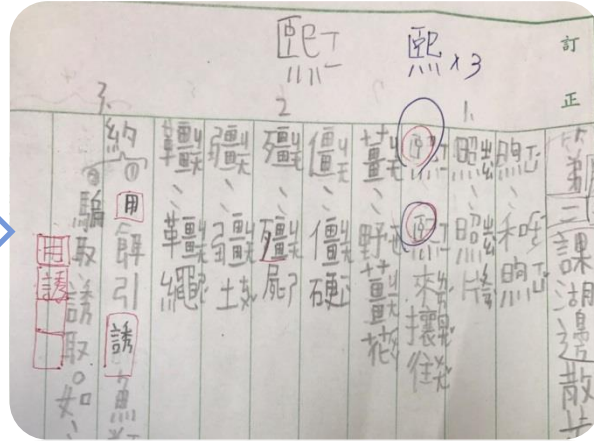 訂正
熙 x3
熙ㄒㄧ
第三課湖邊散步
煦、和煦
1. 照、照片
熙、熙來攘往
薑、野薑花
2. 僵、僵硬
殭、殭屍
疆、疆土
韁、韁繩
3. 釣
①用餌引誘魚
②騙取誘取。如、
用誘